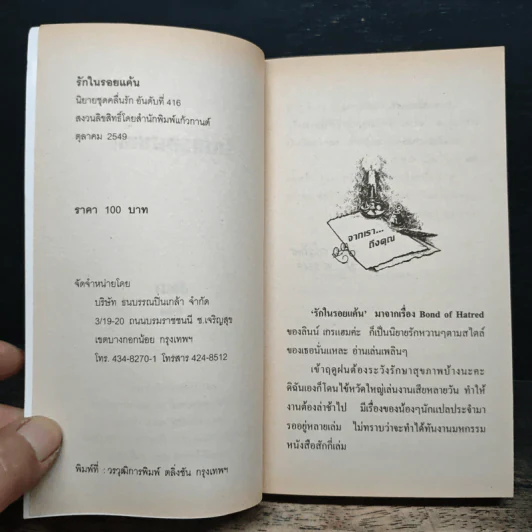 รักในรอยแค้น
นิยายชุดคลื่นรัก อันดับที่ 416
สงวนลิขสิทธิ์โดยสำนักพิมพ์แก้วกานต์
ตุลาคม 2549
ราคา 100 บาท
จัดจำหน่ายโดย
บริษัท ธนบรรณปิ่นเกล้า จำกัด
3/19-20 ถนนบรมราชชนนี ซ.เจริญสุข
เขตบางกอกน้อย กรุงเทพฯ
โทร. 434-8270-1 โทรสาร 424-8512
พิมพ์ที่ : วรวุฒิการพิมพ์ ตลิ่งชัน กรุงเทพฯ
จากเรา...
ถึงคุณ
'รักในรอยแค้น' มาจากเรื่อง Bond of Hatred
ของลินน์ เกรแฮมค่ะ ก็เป็นนิยายรักหวานๆตามสไตล์
ของเธอนั่นแหละ อ่านเล่นเพลินๆ
เข้าฤดูฝนต้องระวังรักษาสุขภาพบ้างนะคะ
ดิฉันเองก็โดนไข้หวัดใหญ่เล่นงานเสียหลายวัน ทำให้
งานต้องล่าช้าไป มีเรื่องของน้องๆนักแปลประจำมา
รออยู่หลายเล่ม ไม่ทราบว่าจะทำได้ทันงานมหกรรม
หนังสือสักกี่เล่ม